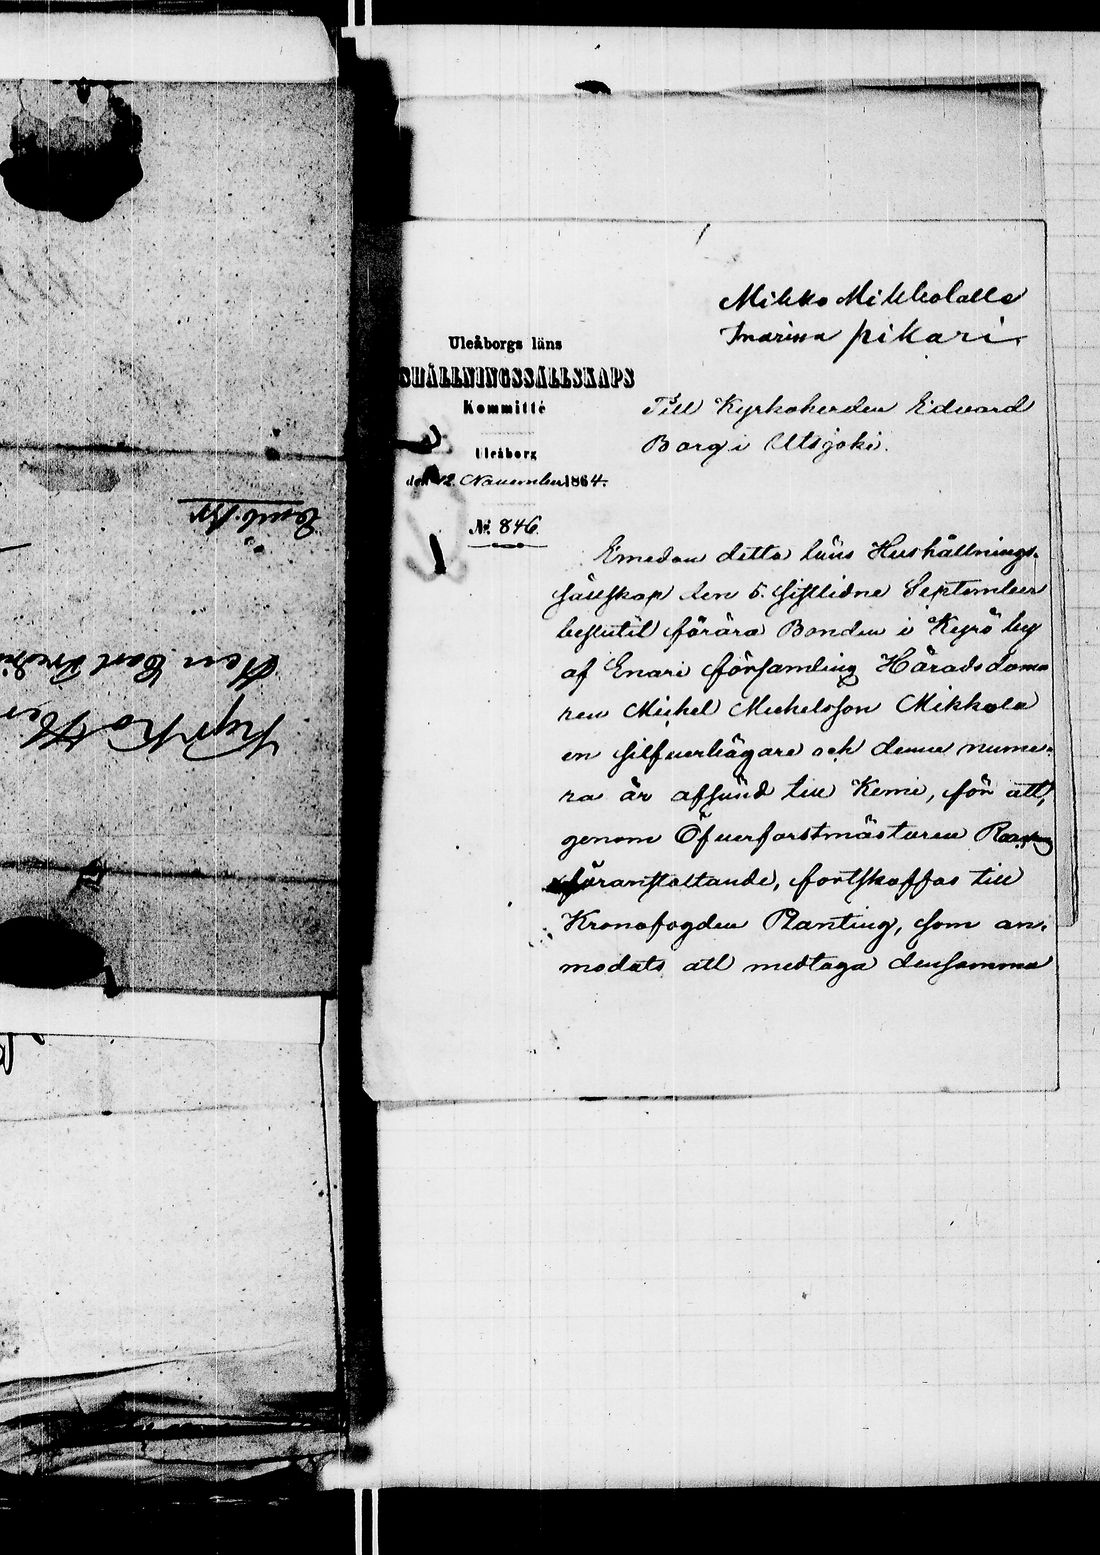 Mikko Mikkolalle
Inarissa pikari
Uleåborgs läns
SHÅLLNINGSSÄLLSKAPS
Kommitté
Uleåborg
den 12. November 1864.
№ 846.
Till Kyrkoherden Edvard
Borg i Utsjoki.
Emedan detta läns Hushållnings-
sällskap den 5. sistlidne September
beslutit förära Bonden i Kyrö by
af Enari församling Häradsdoma
ren Michel Michelsson Mikkola
en silfverbägare och denne nume-
ra är afsänd till Kemi, för att,
genom Öfverforstmästaren
föranstaltande, fortskaffas till
Kronofogden Planting, som an-
modats att medtaga densamma
Herr Carl